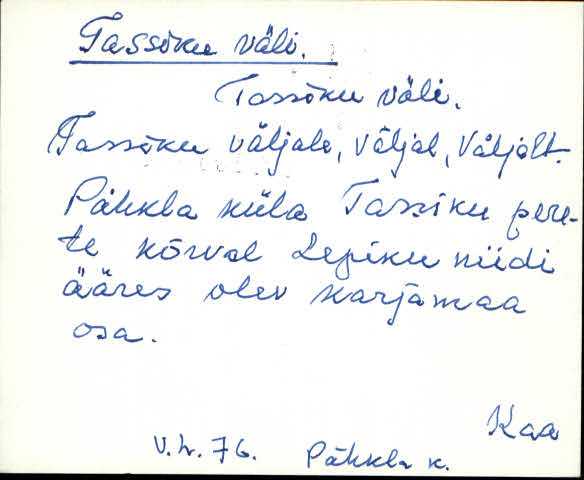 Tassiku väli.
Tassiku väli.
Tassiku väljale, väljal, väljalt.
Pähkla küla Tassiku pere-
te kõrval Lepiku niidi
ääres olev karjamaa
osa.
Kaa
V.L. 76. Pähkla k.